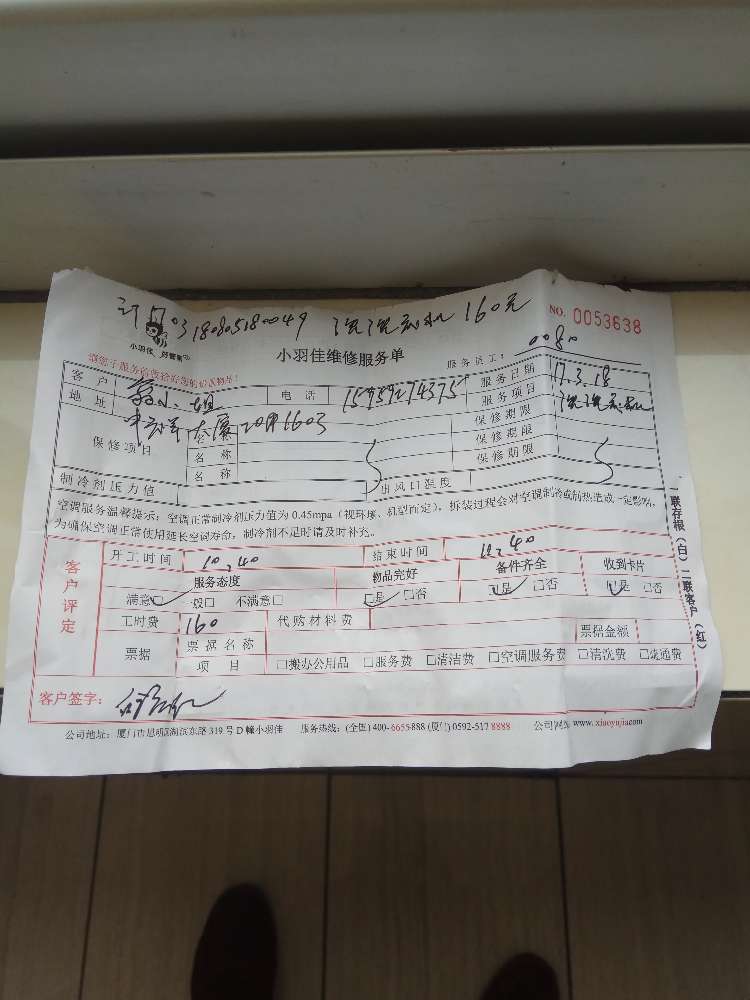 订单 03180805180049 洗洗衣机 160元
小羽佳 好管家
NO. 0053638
小羽佳维修服务单
服务员工: 0080
客户 小姐 电话 15959274375 服务日期 17.3.18
地址 大厦 1603 服务项目 洗洗衣机
保修项目 名称 保修期限
名称 保修期限
名称 保修期限
制冷剂压力值 出风口温度
空调服务温馨提示:空调正常制冷剂压力值为0.45mpa(视环境、机型而定),拆装过程会对空调制冷或制热造成一定影响,
为确保空调正常使用延长空调寿命,制冷剂不足时请及时补充。
一联存根(白)二联客户(红)
客户评定
开工时间 10.40 结束时间 12.40
服务态度 物品完好 备件齐全 收到卡片
满意□ 一般□ 不满意□ □是 □否 □是 □否 □是 □否
工时费 160 代购材料费
票据 票据名称 票据金额
项目 □搬办公用品 □服务费 □清洁费 □空调服务费 □清洗费 □疏通费
客户签字:
公司地址:厦门市思明区湖滨东路319号D幢小羽佳 服务热线:(全国)400-6655888 (厦门)0592-5178888 公司网址 www.xiaoyujia.com